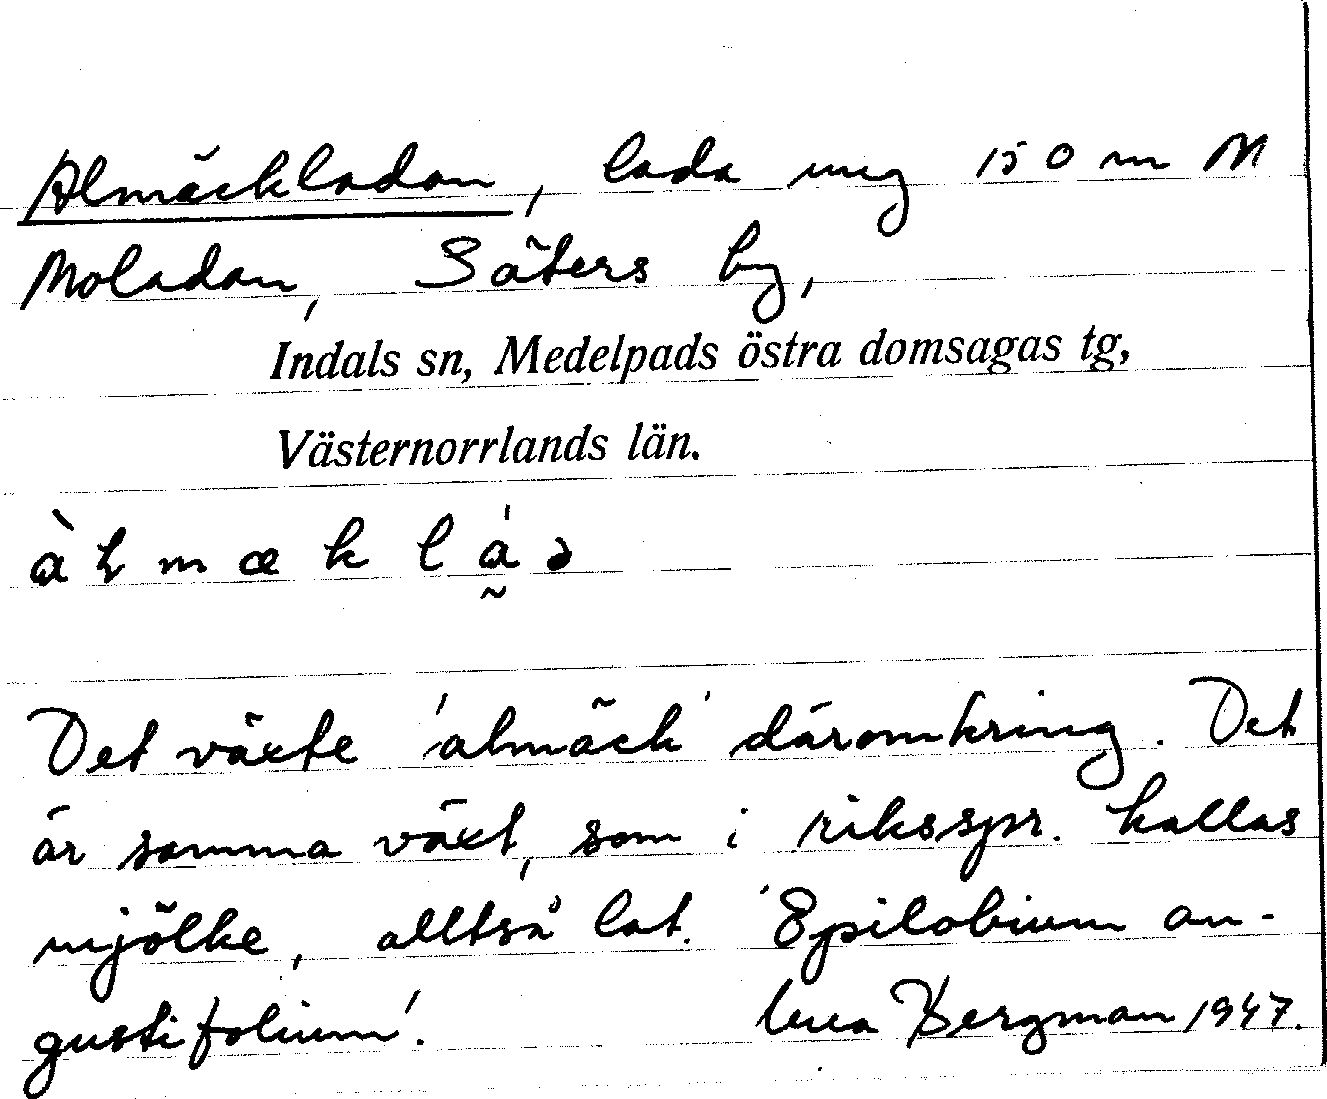 Almäckladan, lada ung 150 m N
Moladan, Säters by,
Indals sn, Medelpads östra domsagas tg,
Västernorrlands län.
Det växte 'almäck' däromkring. Det
är samma växt, som i riksspr. kallas
mjölke, alltså lat. 'Epilobium an-
gustifolium'. Bergman 1947.